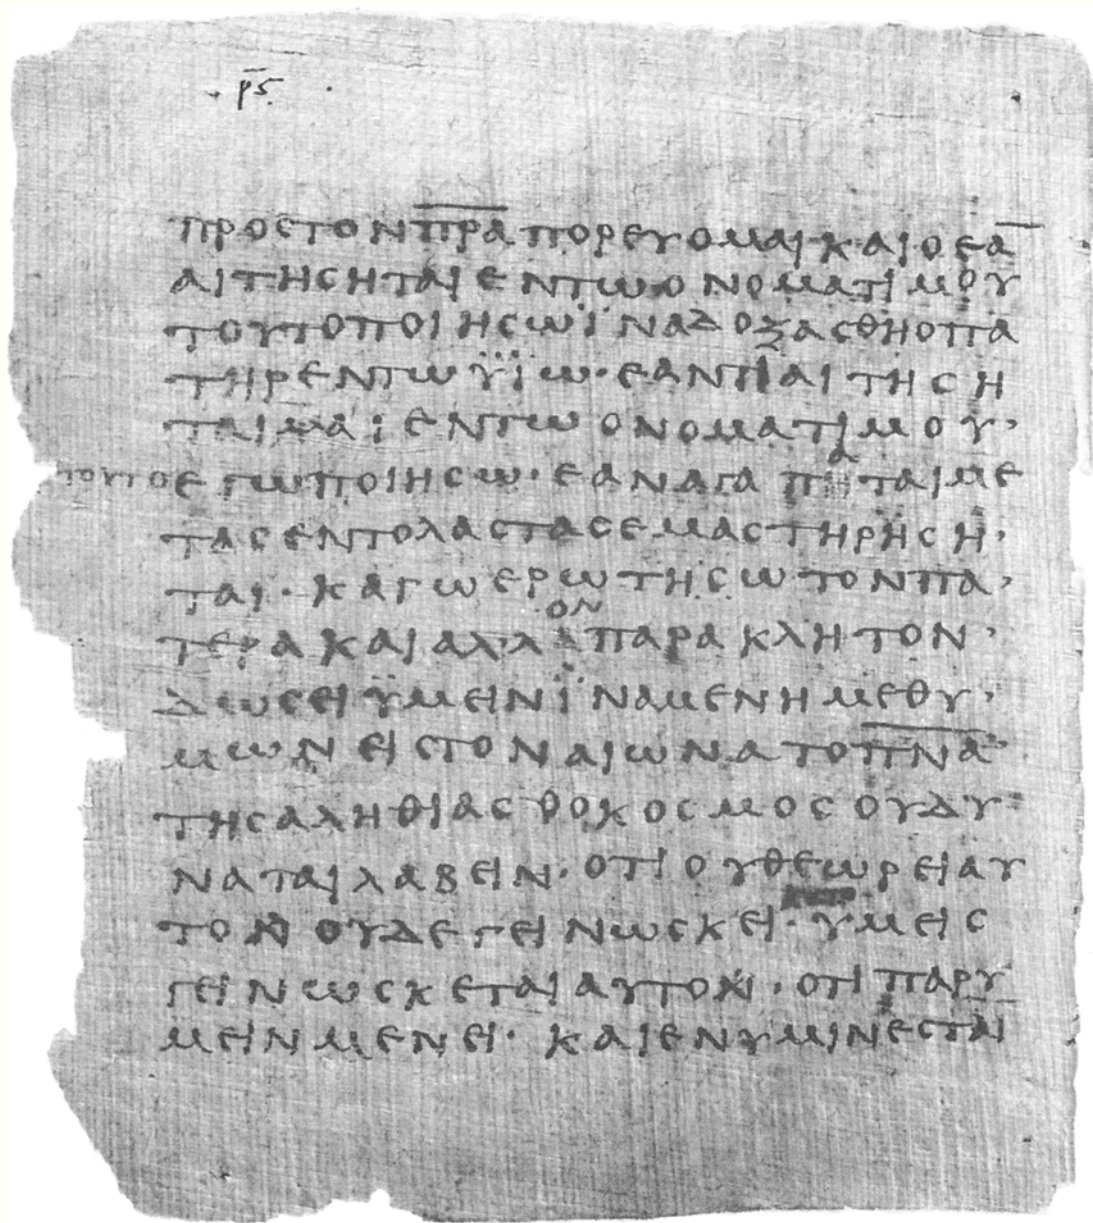 ρϛ
ΠΡΟΣΤΟΝΠ̅Ρ̅Α̅ΠΟΡΕΥΟΜΑΙΚΑΙΟΕΑ̅
ΑΙΤΗϹΗΤΑΙΕΝΤΩΟΝΟΜΑΤΙΜΟΥ
ΤΟΥΤΟΠΟΙΗϹΩΪΝΑΔΟΞΑϹΘΗΟΠΑ
ΤΗΡΕΝΤΩΫΪΩ·ΕΑΝΤΙΑΙΤΗϹΗ
ΤΑΙΜΑΙΕΝΤΩΟΝΟΜΑΤΙΜΟΥ·
ΤΟΥΤΟΕΓΩΠΟΙΗϹΩ·ΕΑΝΑΓΑΠΑΤΑΙΜΕ
ΤΑϹΕΝΤΟΛΑϹΤΑϹΕΜΑϹΤΗΡΗϹΗ·
ΤΑΙ·ΚΑΓΩΕΡΩΤΗϹΩΤΟΝΠΑ·
ΤΕΡΑΚΑΙΑΛΛΟΝΠΑΡΑΚΛΗΤΟΝ·
ΔΩϹΕΙΫΜΕΙΝΪΝΑΜΕΝΗΜΕΘΥ·
ΜΩΝΕΙϹΤΟΝΑΙΩΝΑΤΟΠ̅Ν̅Α̅
ΤΗϹΑΛΗΘΙΑϹΟΟΚΟϹΜΟϹΟΥΔΥ
ΝΑΤΑΙΛΑΒΕΙΝ·ΟΤΙΟΥΘΕΩΡΕΙΑΥ
ΤΟΝΟΥΔΕΓΕΙΝΩϹΚΕΙ·ΥΜΕΙϹ
ΓΕΙΝΩϹΚΕΤΑΙΑΥΤΟΝ·ΟΤΙΠΑΡΥ
ΜΕΙΝΜΕΝΕΙ·ΚΑΙΕΝΥΜΙΝΕϹΤΑΙ